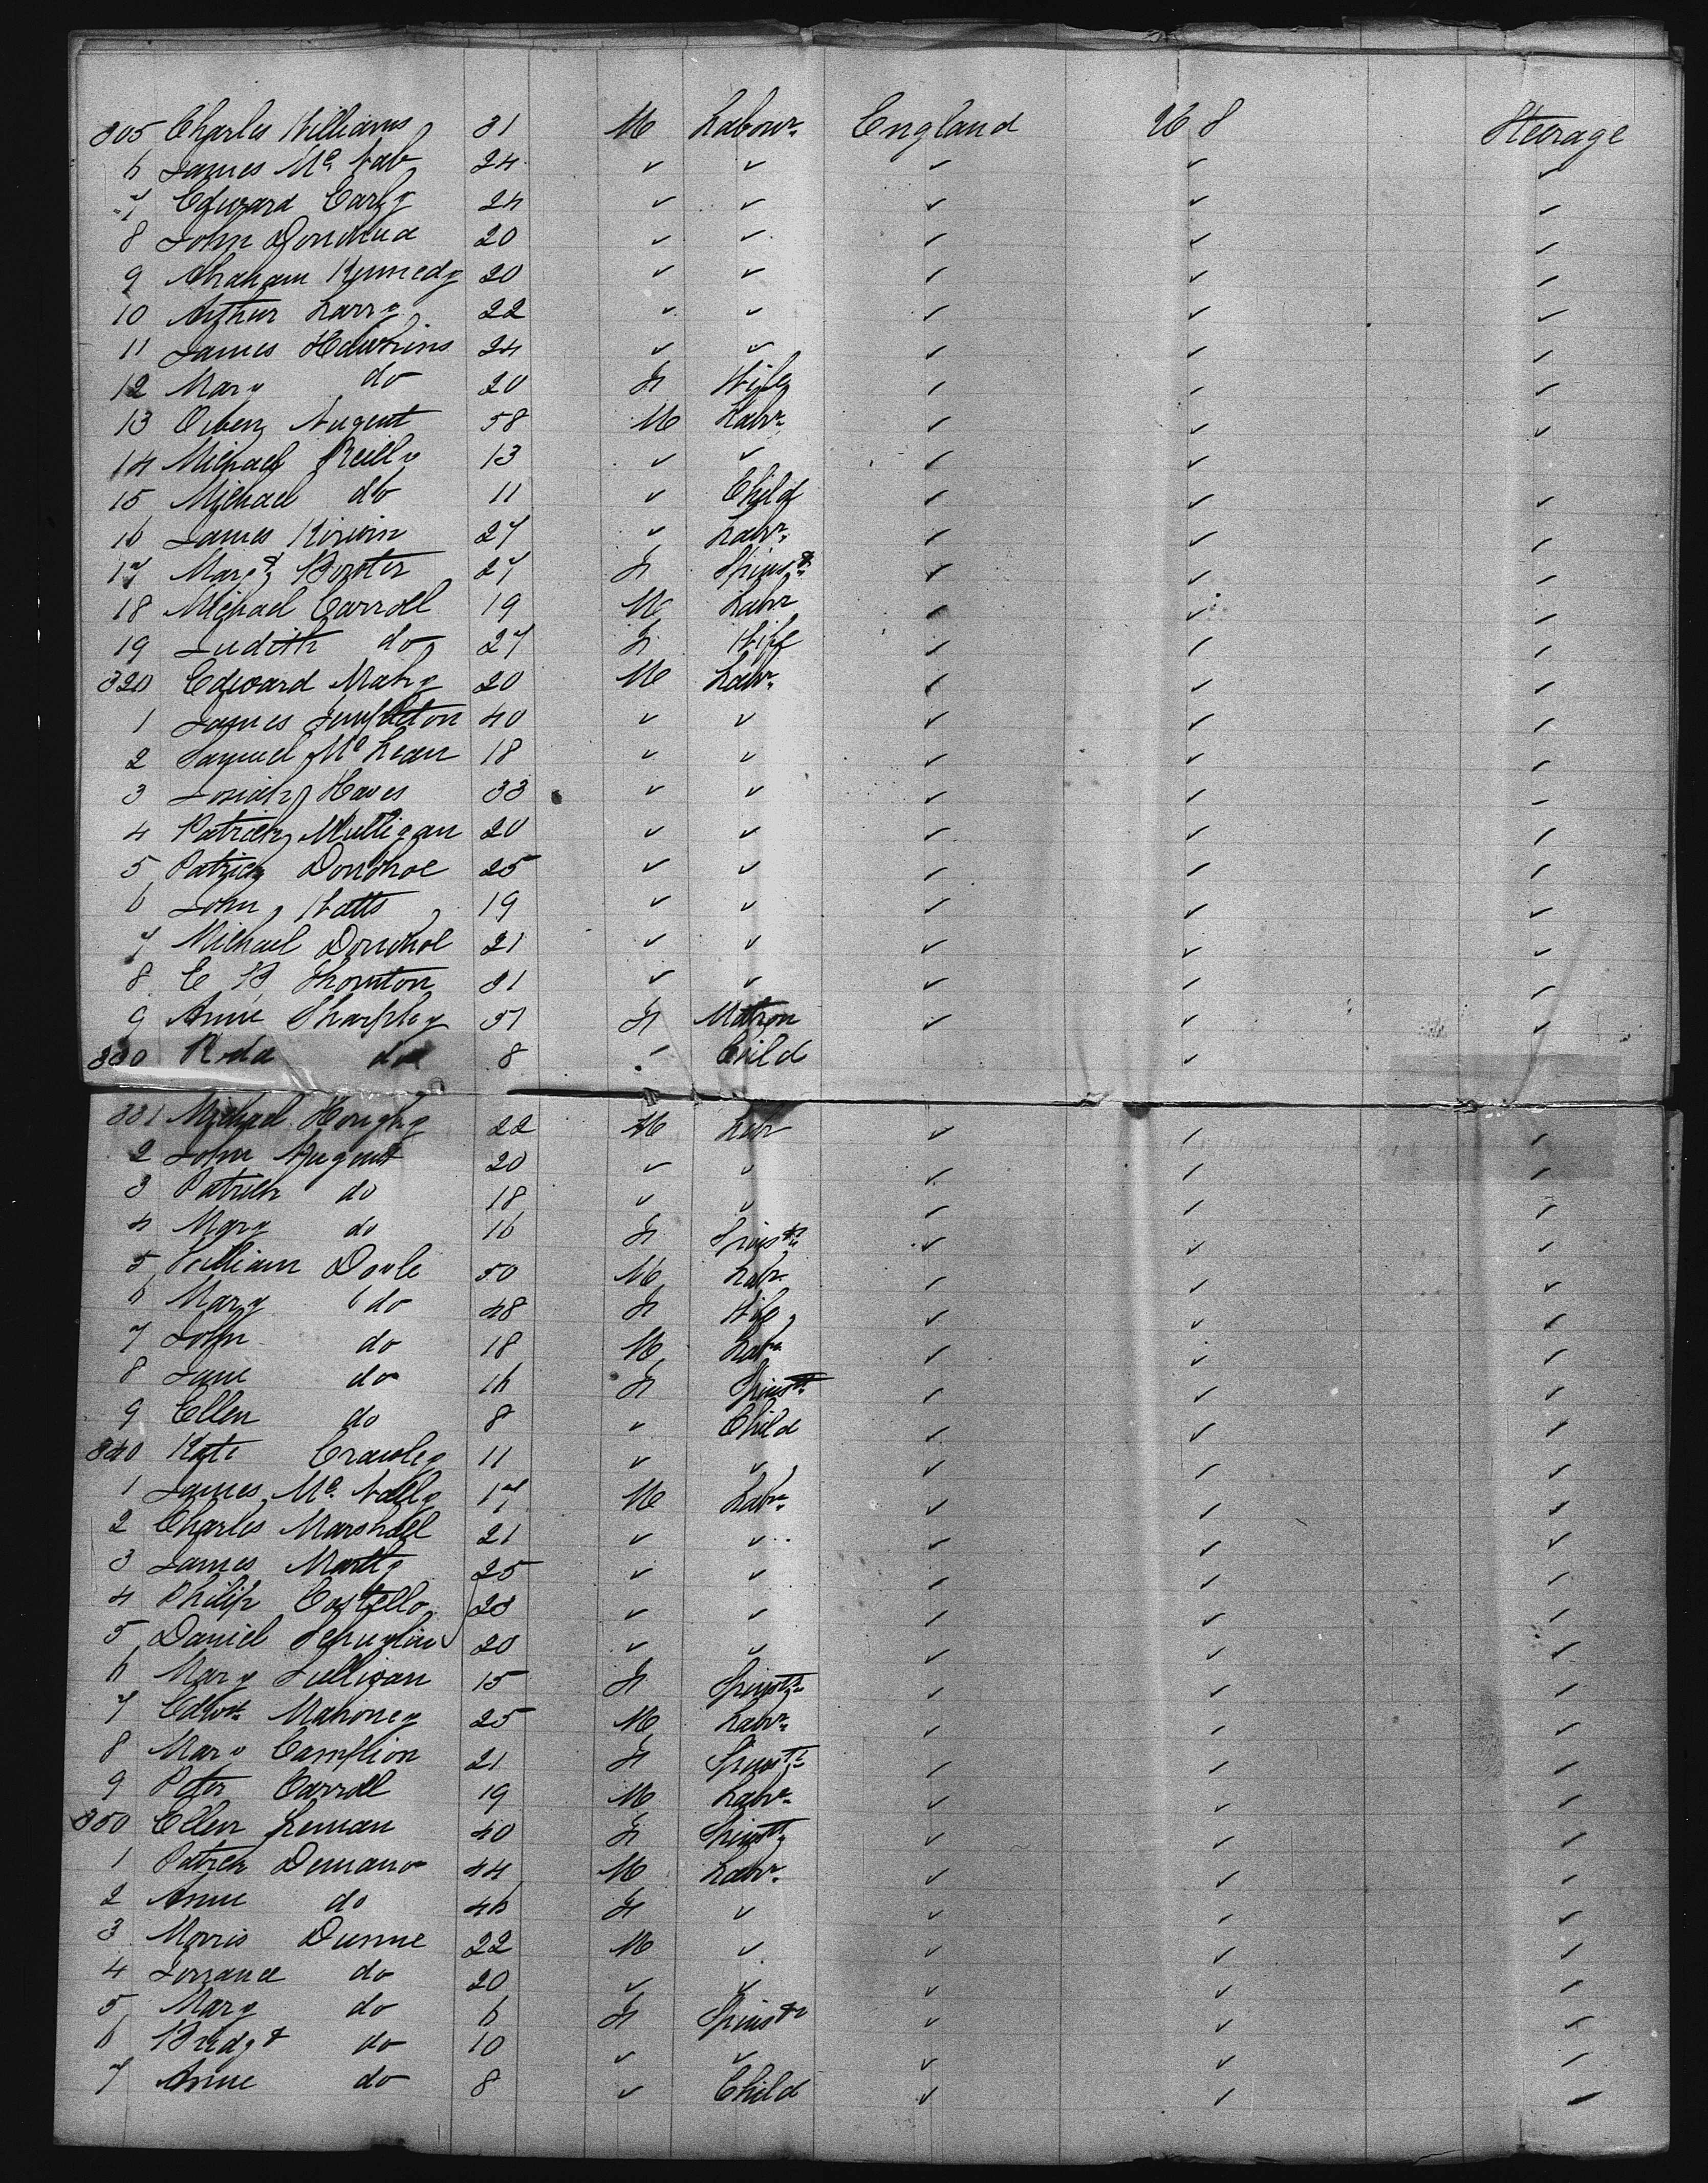 305 Charles Williams 31 M Labourr England U S Steerage
6 James Mc Nab 24 ✓ ✓ ✓ ✓ ✓
7 Edward Early 24 ✓ ✓ ✓ ✓ ✓
8 John 20 ✓ ✓ ✓ ✓ ✓
9 Abraham Kennedy 20 ✓ ✓ ✓ ✓ ✓
10 Arthur Larry 22 ✓ ✓ ✓ ✓ ✓
11 James Hawkins 24 ✓ ✓ ✓ ✓ ✓
12 Mary do 20 F Wife ✓ ✓ ✓
13 Owen Nugent 58 M Labr ✓ ✓ ✓
14 Michael Reilly 13 ✓ ✓ ✓ ✓
15 Michael do 11 ✓ Child ✓ ✓ ✓
16 James Kirwin 27 ✓ Labr ✓ ✓ ✓
17 Margt 27 F Spinstr ✓ ✓ ✓
18 Michael Carroll 19 M Labr ✓ ✓ ✓
19 Judith do 27 F Wife ✓ ✓ ✓
320 Edward Mahy 20 M Labr ✓ ✓ ✓
1 James Templeton 40 ✓ ✓ ✓ ✓ ✓
2 Samuel Mc Lean 18 ✓ ✓ ✓ ✓ ✓
3 Josiah Hayes 33 ✓ ✓ ✓ ✓ ✓
4 Patrick Mulligan 20 ✓ ✓ ✓ ✓ ✓
5 Patrick Donohoe 25 ✓ ✓ ✓ ✓ ✓
6 John Watts 19 ✓ ✓ ✓ ✓ ✓
7 Michael Donohoe 21 ✓ ✓ ✓ ✓ ✓
8 E B Thornton 31 ✓ ✓ ✓ ✓ ✓
9 Annie Sharpley 51 F Matron ✓ ✓ ✓
330 do 8 ✓ Child ✓
331 Michael 22 M Labr ✓ ✓ ✓
2 John Nugent 20 ✓ ✓ ✓ ✓ ✓
3 Patrick do 18 ✓ ✓ ✓ ✓ ✓
4 Mary do 16 F Spinstr ✓ ✓ ✓
5 William Doyle 50 M Labr ✓ ✓ ✓
6 Mary do 48 F Wife ✓ ✓ ✓
7 John do 18 M Labr ✓ ✓ ✓
8 Jane do 16 F Spinstr ✓ ✓ ✓
9 Ellen do 8 ✓ Child ✓ ✓ ✓
340 Kate Crawley 11 ✓ ✓ ✓ ✓ ✓
1 James Mc Nally 17 M Labr ✓ ✓ ✓
2 Charles Marshall 21 ✓ ✓ ✓ ✓ ✓
3 James 25 ✓ ✓ ✓ ✓ ✓
4 Philip Costello 23 ✓ ✓ ✓ ✓ ✓
5 Daniel 20 ✓ ✓ ✓ ✓ ✓
6 Mary Sullivan 15 F Spinstr ✓ ✓ ✓
7 Edwd Mahoney 25 M Labr ✓ ✓ ✓
8 Mary Campion 21 F Spinstr ✓ ✓ ✓
9 Peter Carroll 19 M Labr ✓ ✓ ✓
350 Ellen 40 F Spinstr ✓ ✓ ✓
1 Patrick 44 M Labr ✓ ✓ ✓
2 Anne do 46 F ✓ ✓ ✓ ✓
3 Morris Dunne 22 M ✓ ✓ ✓ ✓
4 do 20 ✓ ✓ ✓ ✓ ✓
5 Mary do 6 F Spinstr ✓ ✓ ✓
6 Bridgt do 10 ✓ ✓ ✓ ✓ ✓
7 Anne do 8 ✓ Child ✓ ✓ ✓